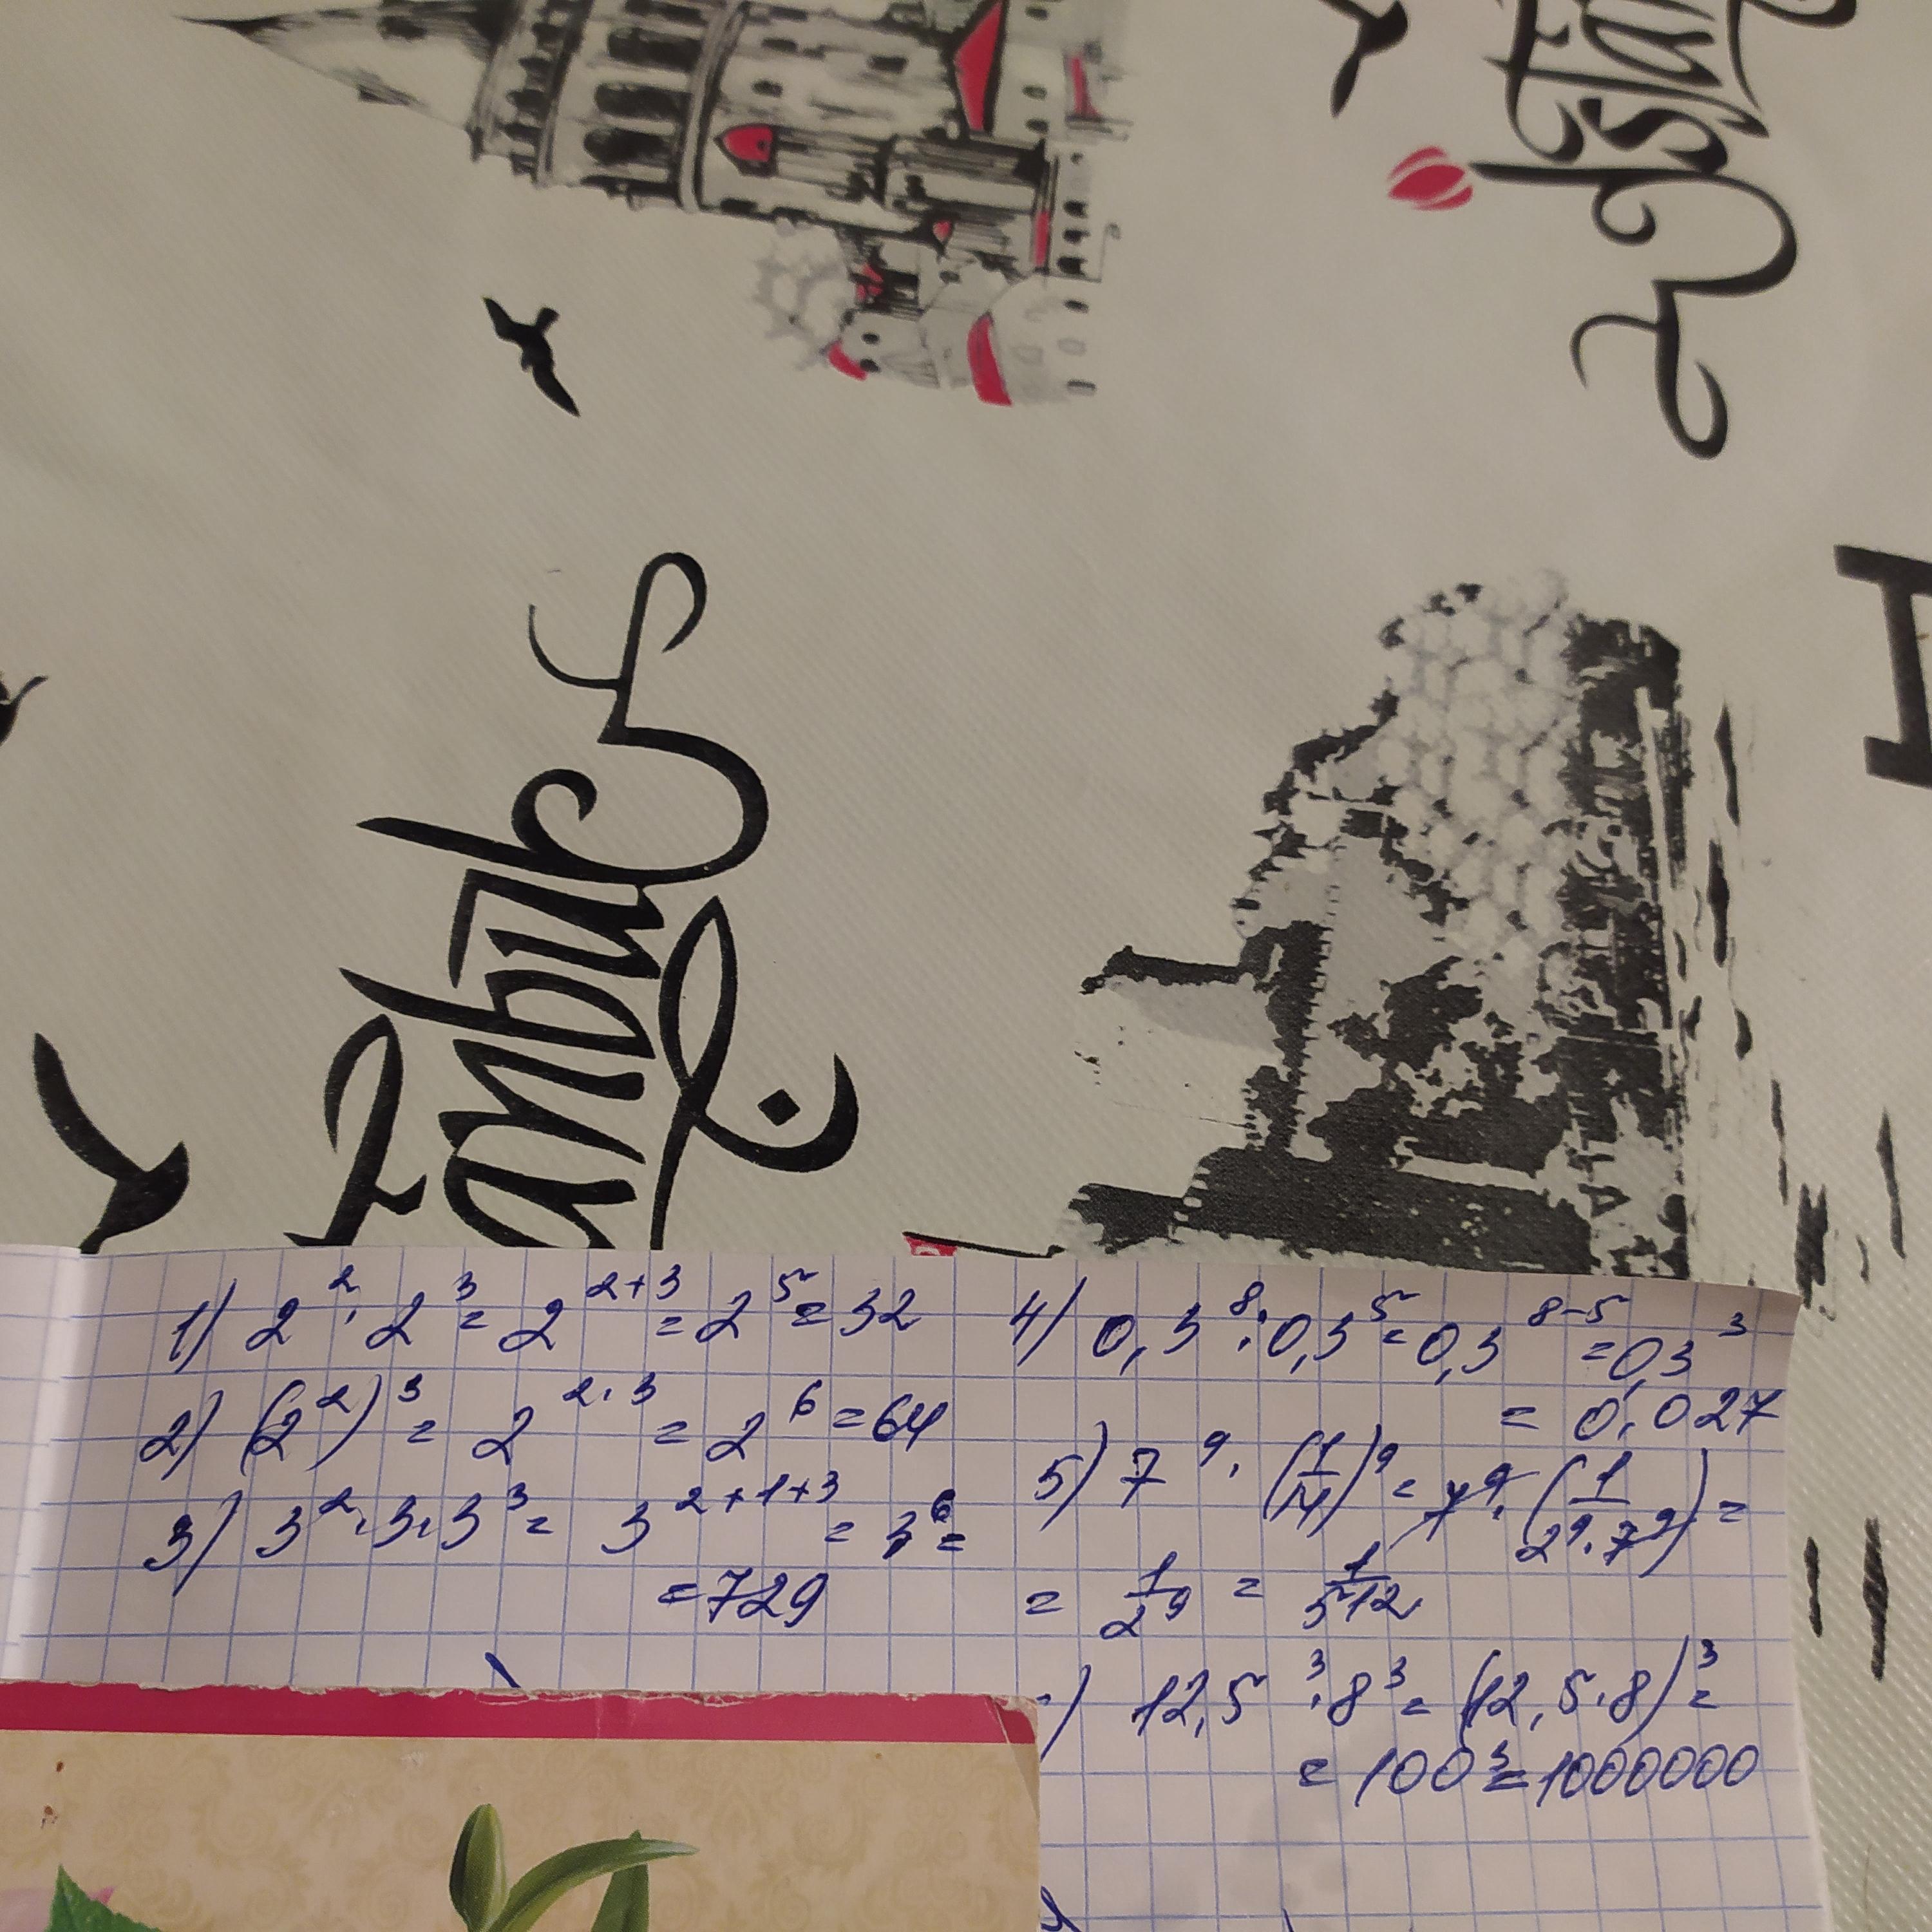 Istan
anbul
1) 2² · 2³ = 2²⁺³ = 2⁵ = 32
2) (2²)³ = 2²·³ = 2⁶ = 64
3) 3² · 3 · 3³ = 3²⁺¹⁺³ = 3⁶ =
= 729
4) 0,3⁸ : 0,3⁵ = 0,3⁸⁻⁵ = 0,3³
= 0,027
5) 7⁹ · (1/14)⁹ = 7⁹ · (1/2⁹·7⁹) =
= 1/2⁹ = 1/512
) 12,5³ · 8³ = (12,5·8)³ =
= 100³ = 1000000